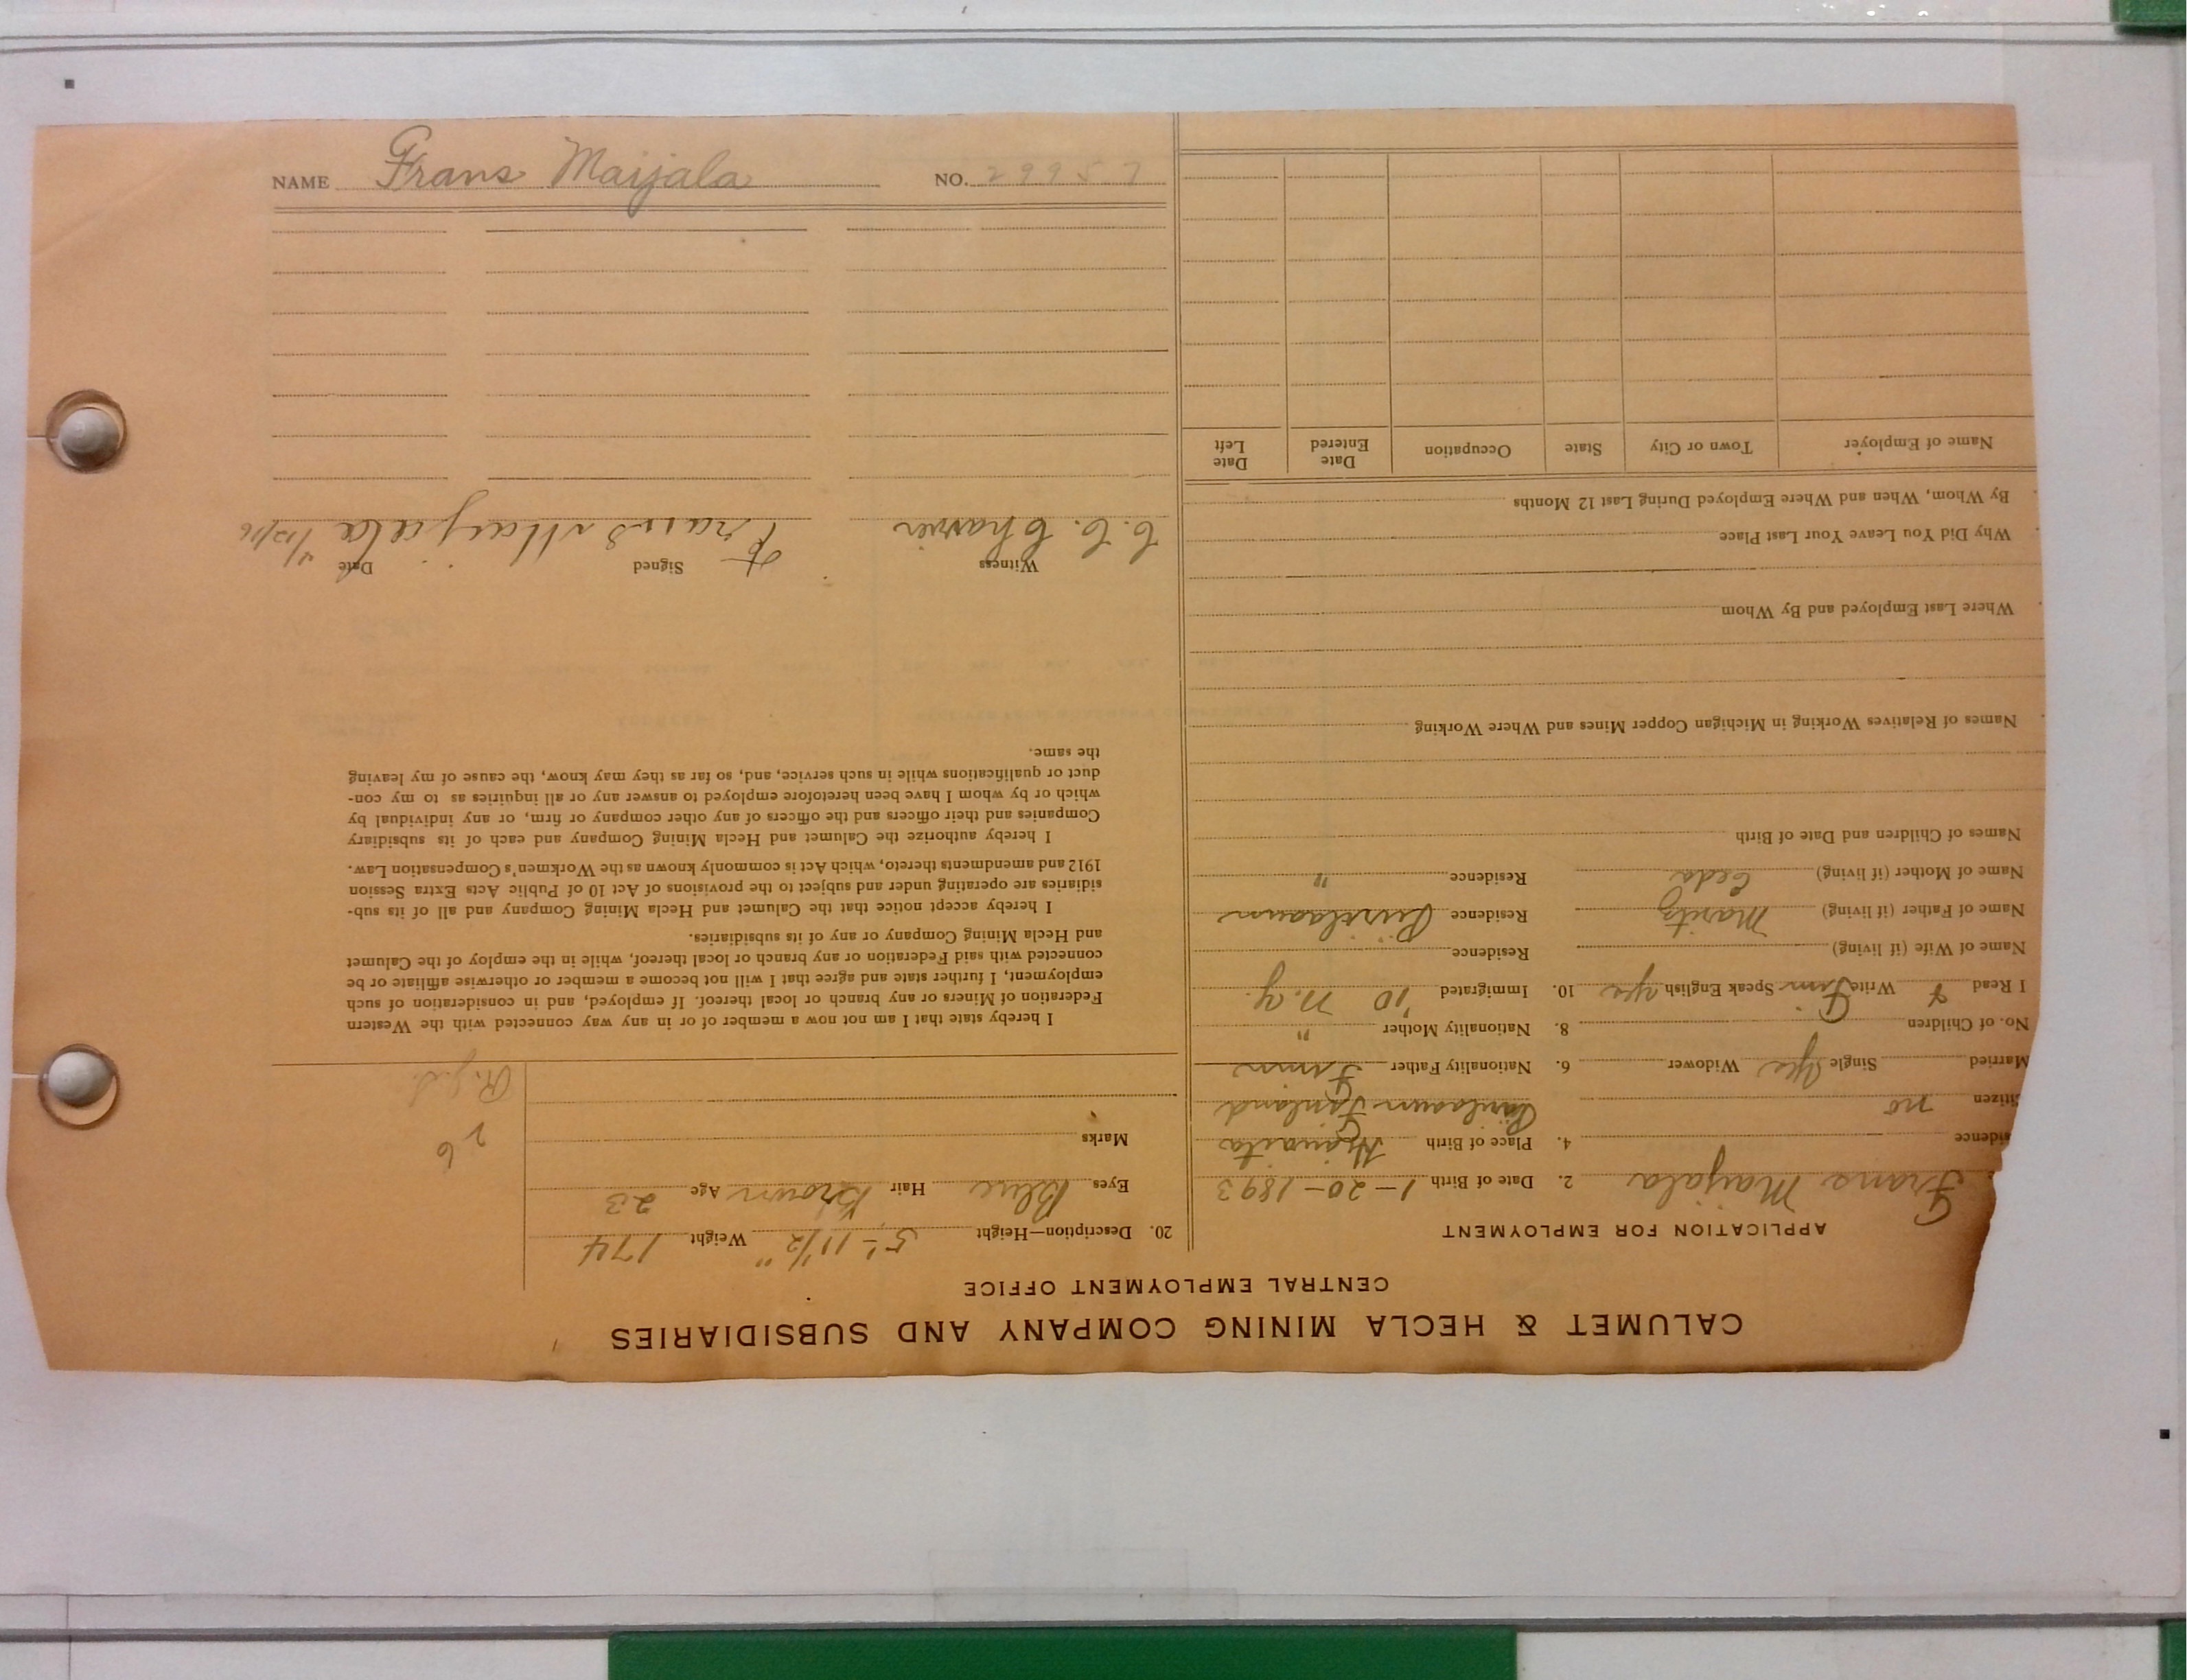 NAME Frans Maijala NO. 29957
CALUMET & HECLA MINING COMPANY AND SUBSIDIARIES
CENTRAL EMPLOYMENT OFFICE
APPLICATION FOR EMPLOYMENT
Frans Maijala 2. Date of Birth 1-20-1893
sidence 4. Place of Birth
itizen no Finland
Married Single yes Widower 6. Nationality Father Finn
No. of Children 8. Nationality Mother "
I Read & Write Finn Speak English yes 10. Immigrated '10 N.Y.
Name of Wife (if living) Residence
Name of Father (if living) Residence
Name of Mother (if living) Residence "
Names of Children and Date of Birth
Names of Relatives Working in Michigan Copper Mines and Where Working
Where Last Employed and By Whom
Why Did You Leave Your Last Place
By Whom, When and Where Employed During Last 12 Months
Name of Employer Town or City State Occupation Date Entered Date Left
20. Description—Height 5'-11 1/2" Weight 174
Eyes Blue Hair Brown Age 23
Marks
26
I hereby state that I am not now a member of or in any way connected with the Western
Federation of Miners or any branch or local thereof. If employed, and in consideration of such
employment, I further state and agree that I will not become a member or otherwise affiliate or be
connected with said Federation or any branch or local thereof, while in the employ of the Calumet
and Hecla Mining Company or any of its subsidiaries.
I hereby accept notice that the Calumet and Hecla Mining Company and all of its sub-
sidiaries are operating under and subject to the provisions of Act 10 of Public Acts Extra Session
1912 and amendments thereto, which Act is commonly known as the Workmen's Compensation Law.
I hereby authorize the Calumet and Hecla Mining Company and each of its subsidiary
Companies and their officers and the officers of any other company or firm, or any individual by
which or by whom I have been heretofore employed to answer any or all inquiries as to my con-
duct or qualifications while in such service, and, so far as they may know, the cause of my leaving
the same.
Witness Signed Date
C. C. Frans Maijala 4/12/16